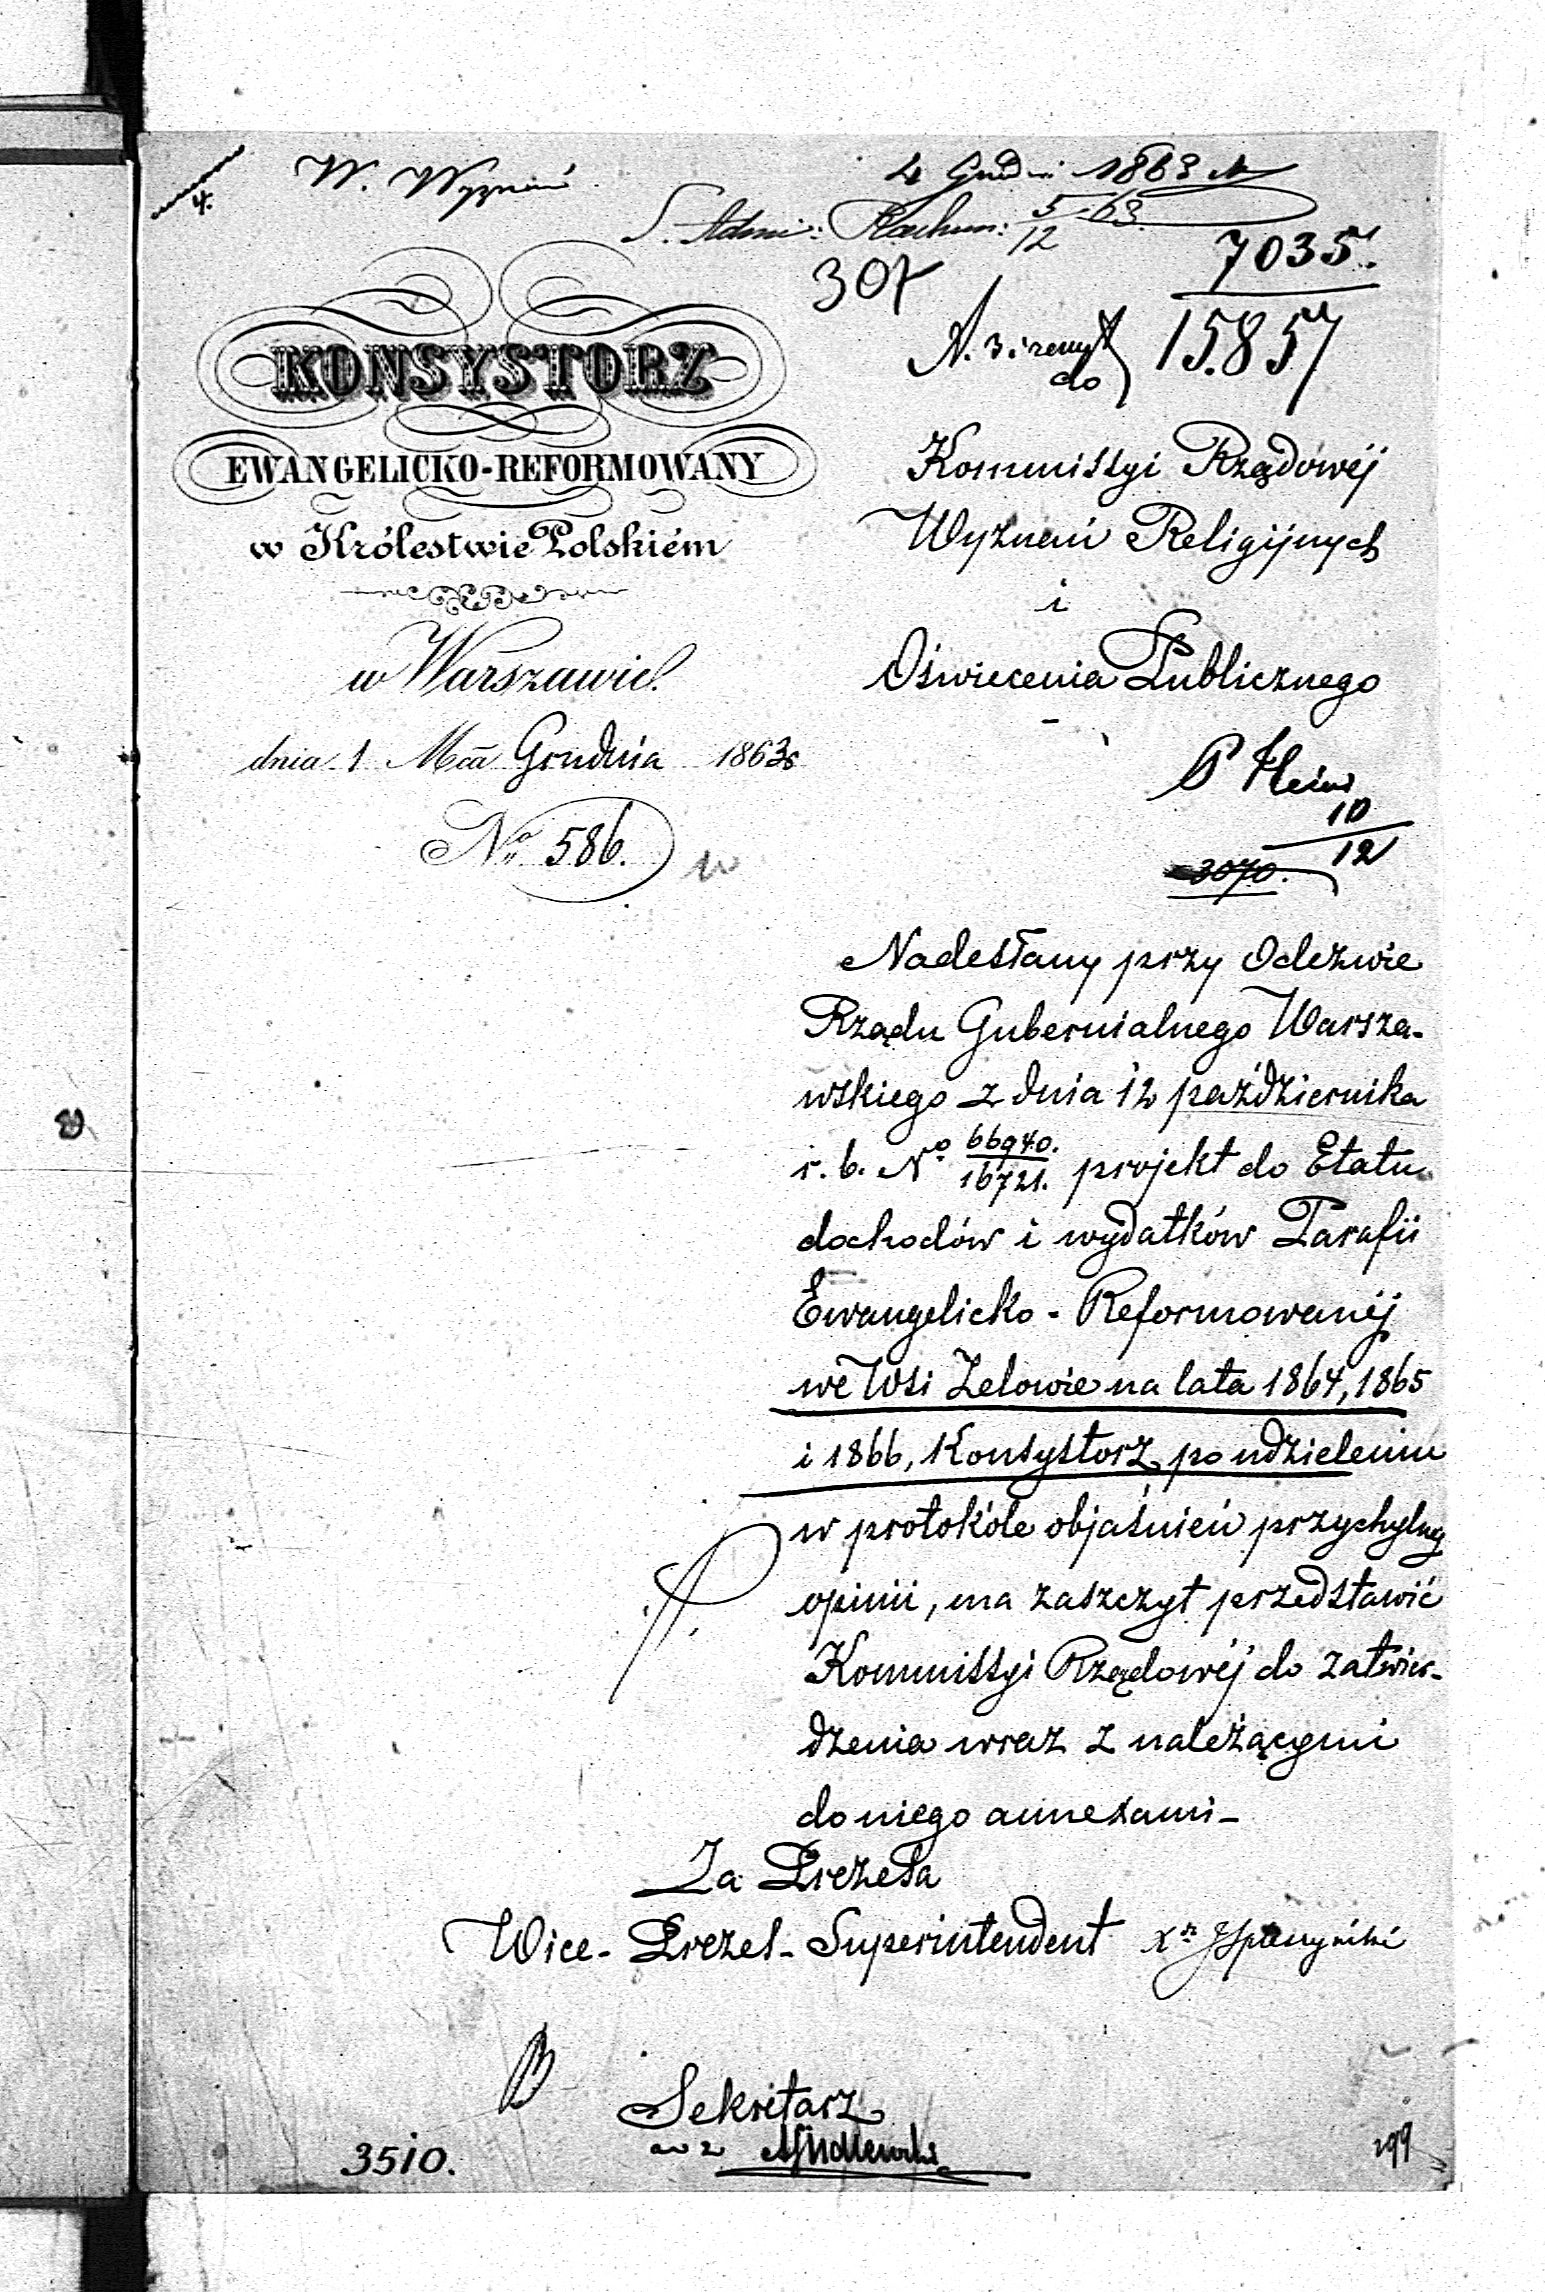 4.
W. Wyznań
4 Grudn 1863
S. Admi: Rachun: 5/12 63
307
7035.
15857
do
KONSYSTORZ
EWANGELICKO-REFORMOWANY
w Królestwie Polskiém
w Warszawie.
dnia 1 Mca Grudnia 1863
No 586.
Kommissyi Rządowéj
Wyznań Religijnych
i
Oświecenia Publicznego
P Klein
10/12
3070.
Nadesłany przy Odezwie
Rządu Gubernialnego Warsza-
wskiego z dnia 12 października
r. b. No 66940./16721. projekt do Etatu
dochodów i wydatków Parafii
Ewangelicko-Reformowanéj
we Wsi Zelowie na lata 1864, 1865
i 1866, Konsystorz po udzieleniu
w protokóle objaśnień przychylnej
opinii, ma zaszczyt przedstawić
Kommissyi Rządowéj do zatwier-
dzenia wraz z należącymi
do niego annexami-
Za Prezesa
Wice-Prezes-Superintendent
Sekretarz
3510.
299